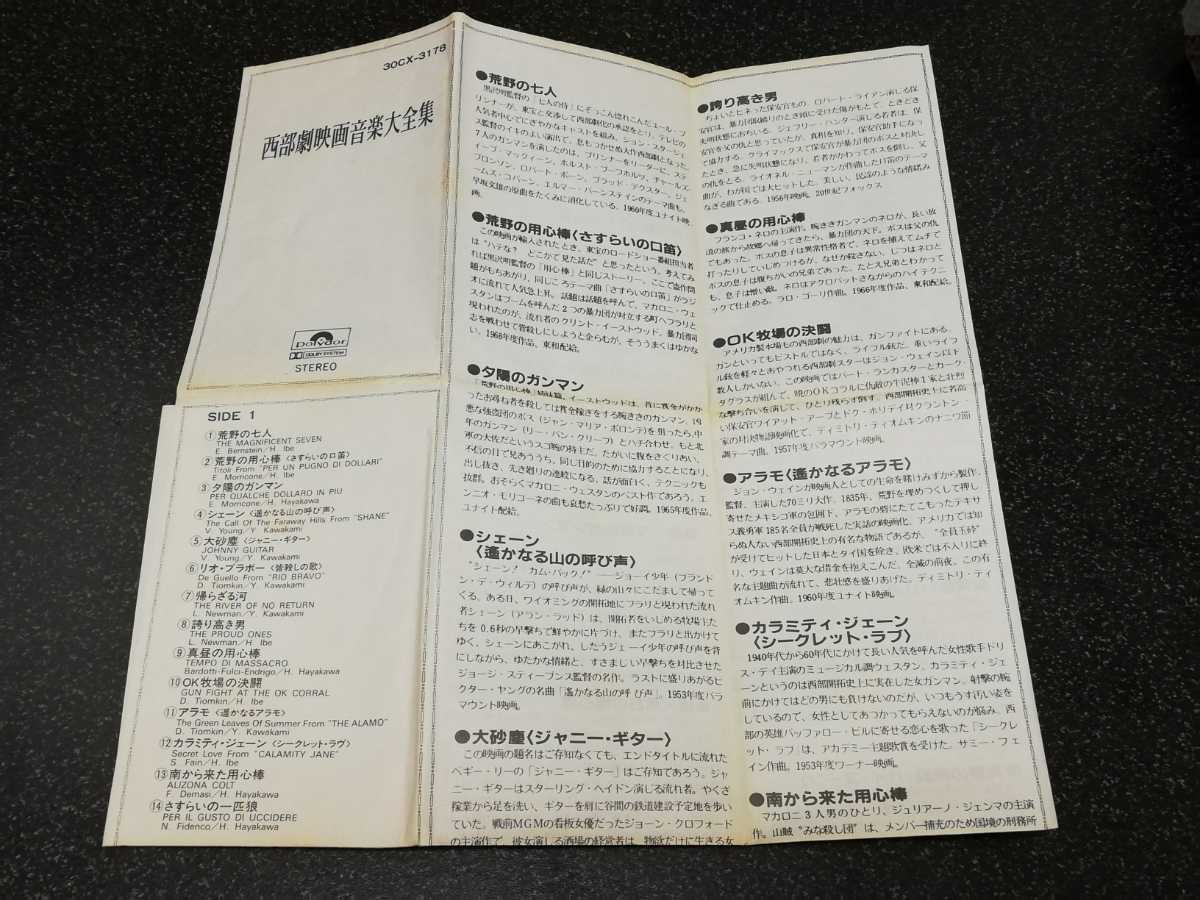 30CX-3178
西部劇映画音楽大全集
Polydor
DOLBY SYSTEM
STEREO
SIDE 1
①荒野の七人
THE MAGNIFICENT SEVEN
E. Bernstein/H. Ibe
②荒野の用心棒〈さすらいの口笛〉
Titoli From "PER UN PUGNO DI DOLLARI"
E. Morricone/H. Ibe
③夕陽のガンマン
PER QUALCHE DOLLARO IN PIU
E. Morricone/H. Hayakawa
④シェーン〈遥かなる山の呼び声〉
The Call Of The Faraway Hills From "SHANE"
V. Young/Y. Kawakami
⑤大砂塵〈ジャニー・ギター〉
JOHNNY GUITAR
V. Young/Y. Kawakami
⑥リオ・ブラボー〈皆殺しの歌〉
De Guello From "RIO BRAVO"
D. Tiomkin/Y. Kawakami
⑦帰らざる河
THE RIVER OF NO RETURN
L. Newman/Y. Kawakami
⑧誇り高き男
THE PROUD ONES
L. Newman/H. Ibe
⑨真昼の用心棒
TEMPO DI MASSACRO
Bardotti-Fulci-Endrigo/H. Hayakawa
⑩OK牧場の決闘
GUN FIGHT AT THE OK CORRAL
D. Tiomkin/H. Ibe
⑪アラモ〈遥かなるアラモ〉
The Green Leaves Of Summer From "THE ALAMO"
D. Tiomkin/Y. Kawakami
⑫カラミティ・ジェーン〈シークレット・ラヴ〉
Secret Love From "CALAMITY JANE"
S. Fain/H. Ibe
⑬南から来た用心棒
ALIZONA COLT
F. Demasi/H. Hayakawa
⑭さすらいの一匹狼
PER IL GUSTO DI UCCIDERE
N. Fidenco/H. Hayakawa
●荒野の七人
黒沢明監督の「七人の侍」にぞっこん惚れこんだユール・ブ
リンナーが、東宝と交渉して西部劇化の承認をとり、テレビの
人気者中心でにぎやかなキャストを組み、ジョン・スタージェ
ス監督のイキのよい演出で、息もつかせぬ大作西部劇となった。
7人のガンマンを演じたのは、ブリンナーをリーダーに、ステ
ィーブ・マックィーン、ホルスト・ブーフホルツ、チャールズ・
ブロンソン、ロバート・ボーン、ブラッド・デクスター、ジェ
ームズ・コバーン。エルマー・バーンスティンのテーマ曲も、
早坂文雄の原曲をたくみに消化している。1960年度ユナイト映
●荒野の用心棒〈さすらいの口笛〉
この映画が輸入されたとき、東宝のロードショー番組担当者
は"ハテな? どこかで見た話だ"と思ったという。考えてみ
れば黒沢明監督の「用心棒」と同じストーリー。ここで盗作問
題がもちあがり、同じころテーマ曲「さすらいの口笛」がラジ
オに流れて人気急上昇。話題は話題を呼んで、マカロニ・ウェ
スタンはブームを呼んだ。2つの暴力団が対立する町へフラリと
現われたのが、流れ者のクリント・イーストウッド。暴力団同
志を戦わせて皆殺しにしようと企らむが、そううまくはゆかな
い。
●夕陽のガンマン
「荒野の用心棒」姉妹篇。イーストウッドは、首に賞金がかか
ったお尋ね者を殺しては賞金稼ぎをする腕ききのガンマン。凶
悪な強盗団のボス（ジャン・マリア・ボロンテ）を狙ったら、中
年のガンマン（リー・バン・クリーフ）とハチ合わせ。もと北
軍の大佐だというスゴ腕の持主だ。たがいに腹をさぐりあい、
不信の目で見あううち、同じ目的のために協力することになり、
出し抜き、先き廻りの連続になる。話が面白く、テクニックも
抜群。おそらくマカロニ・ウェスタンのベスト作であろう。エ
ンニオ・モリコーネの曲も哀愁たっぷりで好調。1965年度作品、
ユナイト配給。
●シェーン
〈遥かなる山の呼び声〉
"シェーン! カム・バック!"――ジョーイ少年（ブランド
ン・デ・ウィルデ）の呼び声が、緑の山々にこだまして帰って
くる。ある日、ワイオミングの開拓地にフラリと現われた流れ
者シェーン（アラン・ラッド）は、開拓者をいじめる牧場主た
ちを0.6秒の早撃ちで鮮やかに片づけ、またフラリと出かけて
ゆく。シェーンにあこがれ、したうジョーイ少年の呼び声を背
にしながら。ゆたかな情緒と、すさまじい早撃ちを対比させた
ジョージ・スティーブンス監督の名作。ラストに盛りあがるビ
クター・ヤングの名曲「遥かなる山の呼び声」。1953年度パラ
マウント映画。
●大砂塵〈ジャニー・ギター〉
この映画の題名はご存知なくても、エンドタイトルに流れた
ペギー・リーの「ジャニー・ギター」はご存知であろう。ジャ
ニー・ギターはスターリング・ヘイドン演じる流れ者。やくざ
稼業から足を洗い、ギターを肩に谷間の鉄道建設予定地を歩い
ていた。戦前MGMの看板女優だったジョーン・クロフォード
の主演作で、彼女演じる酒場の経営者は、物欲だけに生きる女
●誇り高き男
ちょいとヒネった保安官もの。ロバート・ライアン演じる保
安官は、暴力団狩りのとき頭に受けた傷がもとで、ときどき
失明状態におちいる。ジェフリー・ハンター演じる若者は、保
安官を父の仇と思っていたが、真相を知り、保安官助手になっ
て協力する。クライマックスで保安官が暴力団のボスと対決し
たとき、急に失明状態になり、若者がかわってボスを倒し、父
の仇をとる。ライオネル・ニューマンが作曲した口笛のテーマ
曲が、わが国では大ヒットした。美しい、民謡のような情緒み
なぎる曲である。1956年映画。20世紀フォックス
●真昼の用心棒
フランコ・ネロの主演作。腕ききガンマンのネロが、長い放
浪の旅から故郷へ帰ってきたら、暴力団の天下。ボスは父の仇
でもあった。ボスの息子は異常性格者で、ネロを捕えてムチで
打ったりしていじめつけるが、なぜか殺さない。じつはネロと
ボスの息子は腹ちがいの兄弟であった。たとえ兄弟とわかって
も、息子は憎い敵。ネロはアクロバットさながらのハイテクニ
ックで仕止める。ラロ・ゴーリ作曲。1966年度作品、東和配給。
●OK牧場の決闘
アメリカ製本場もの西部劇の魅力は、ガンファイトにある。
ガンといってもピストルではなく、ライフル銃だ。重いライフ
ル銃を軽々とあやつれる西部劇スターはジョン・ウェイン以下
数人しかいない。この映画ではバート・ランカスターとカーク・
ダグラスが組んで、暁のOKコラルに仇敵の牛泥棒1家と壮烈
な撃ち合いを演じて、ひとり残らず倒す。西部開拓史上に名高
い保安官ワイアット・アープとドク・ホリデイ対クラントン・
家の対決物語映画化で、ディミトリ・ティオムキンのナニワ節
調テーマ曲。1957年度パラマウント映画。
●アラモ〈遥かなるアラモ〉
ジョン・ウェインが映画人としての生命を賭けみずから製作、
監督、主演した70ミリ大作。1835年、荒野を埋めつくして押し
寄せたメキシコ軍の包囲下、アラモの砦にたてこもったテキサ
ス義勇軍185名全員が戦死した実話の映画化。アメリカでは知
らぬ人ない西部開拓史上の有名な物語であるが、"全員玉砕"
が受けてヒットした日本とタイ国を除き、欧米では不入りに終
り、ウェインは莫大な借金を抱えこんだ。全滅の前夜。この有
名な主題曲が流れて、悲壮感を盛りあげた。ディミトリ・ティ
オムキン作曲。1960年度ユナイト映画。
●カラミティ・ジェーン
〈シークレット・ラブ〉
1940年代から60年代にかけて長い人気を呼んだ女性歌手ドリ
ス・デイ主演のミュージカル調ウェスタン。カラミティ・ジェ
ーンというのは西部開拓史上に実在した女ガンマン。射撃の腕
前にかけてはどの男にも負けないのだが、いつもうす汚い姿を
しているので、女性としてあつかってもらえないのが悩み。西
部の英雄バッファロー・ビルに寄せる恋心を歌った「シークレ
ット・ラブ」は、アカデミー主題歌賞を受けた。サミー・フェ
イン作曲。1953年度ワーナー映画。
●南から来た用心棒
マカロニ3人男のひとり、ジュリアーノ・ジェンマの主演
作。山賊"みな殺し団"は、メンバー補充のため国境の刑務所